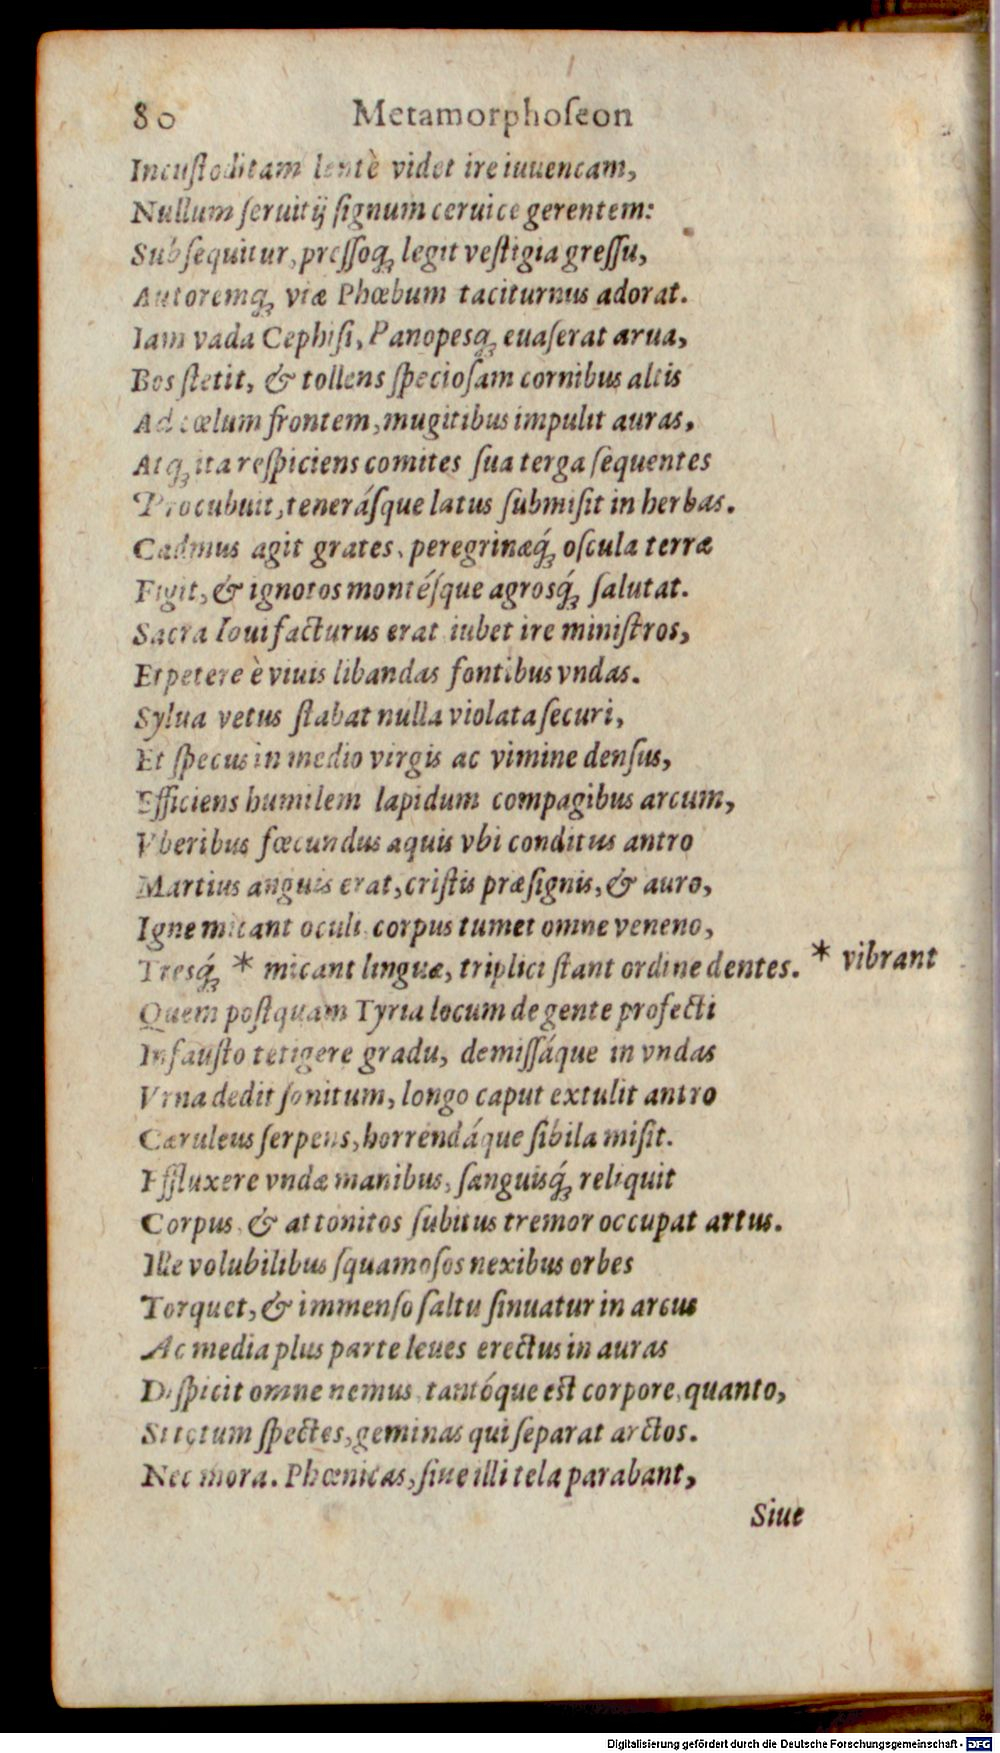 80 Metamorphoſeon
Incuſtoditam lentè videt ire iuuencam,
Nullum ſeruitij ſignum ceruice gerentem:
Subſequitur, preſſoq; legit veſtigia greſſu,
Autoremq; viæ Phœbum taciturnus adorat.
Iam vada Cephiſi, Panopesq; euaſerat arua,
Bos ſtetit, & tollens ſpecioſam cornibus altis
Ad cœlum frontem, mugitibus impulit auras,
Atq; ita reſpiciens comites ſua terga ſequentes
Procubuit, teneráſque latus ſubmiſit in herbas.
Cadmus agit grates, peregrinæq́; oſcula terræ
Figit, & ignotos montéſque agrosq́; ſalutat.
Sacra Ioui facturus erat iubet ire miniſtros,
Et petere è viuis libandas fontibus vndas.
Sylua vetus ſtabat nulla violata ſecuri,
Et ſpecus in medio virgis ac vimine denſus,
Efficiens humilem lapidum compagibus arcum,
Vberibus fœcundus aquis vbi conditus antro
Martius anguis erat, criſtis præſignis, & auro,
Igne micant oculi corpus tumet omne veneno,
Tresq́; * micant linguæ, triplici ſtant ordine dentes. * vibrant
Quem poſtquam Tyria locum de gente profecti
Infauſto tetigere gradu, demiſſáque in vndas
Vrna dedit ſonitum, longo caput extulit antro
Cæruleus ſerpens, horrendáque ſibila miſit.
Effluxere vndæ manibus, ſanguisq́; reliquit
Corpus, & attonitos ſubitus tremor occupat artus.
Ille volubilibus ſquamoſos nexibus orbes
Torquet, & immenſo ſaltu ſinuatur in arcus
Ac media plus parte leues erectus in auras
Diſpicit omne nemus, tantóque eſt corpore, quanto,
Si totum ſpectes, geminas qui ſeparat arctos.
Nec mora. Phœnicas, ſiue illi tela parabant,
Siue
Digitalisierung gefördert durch die Deutsche Forschungsgemeinschaft - DFG